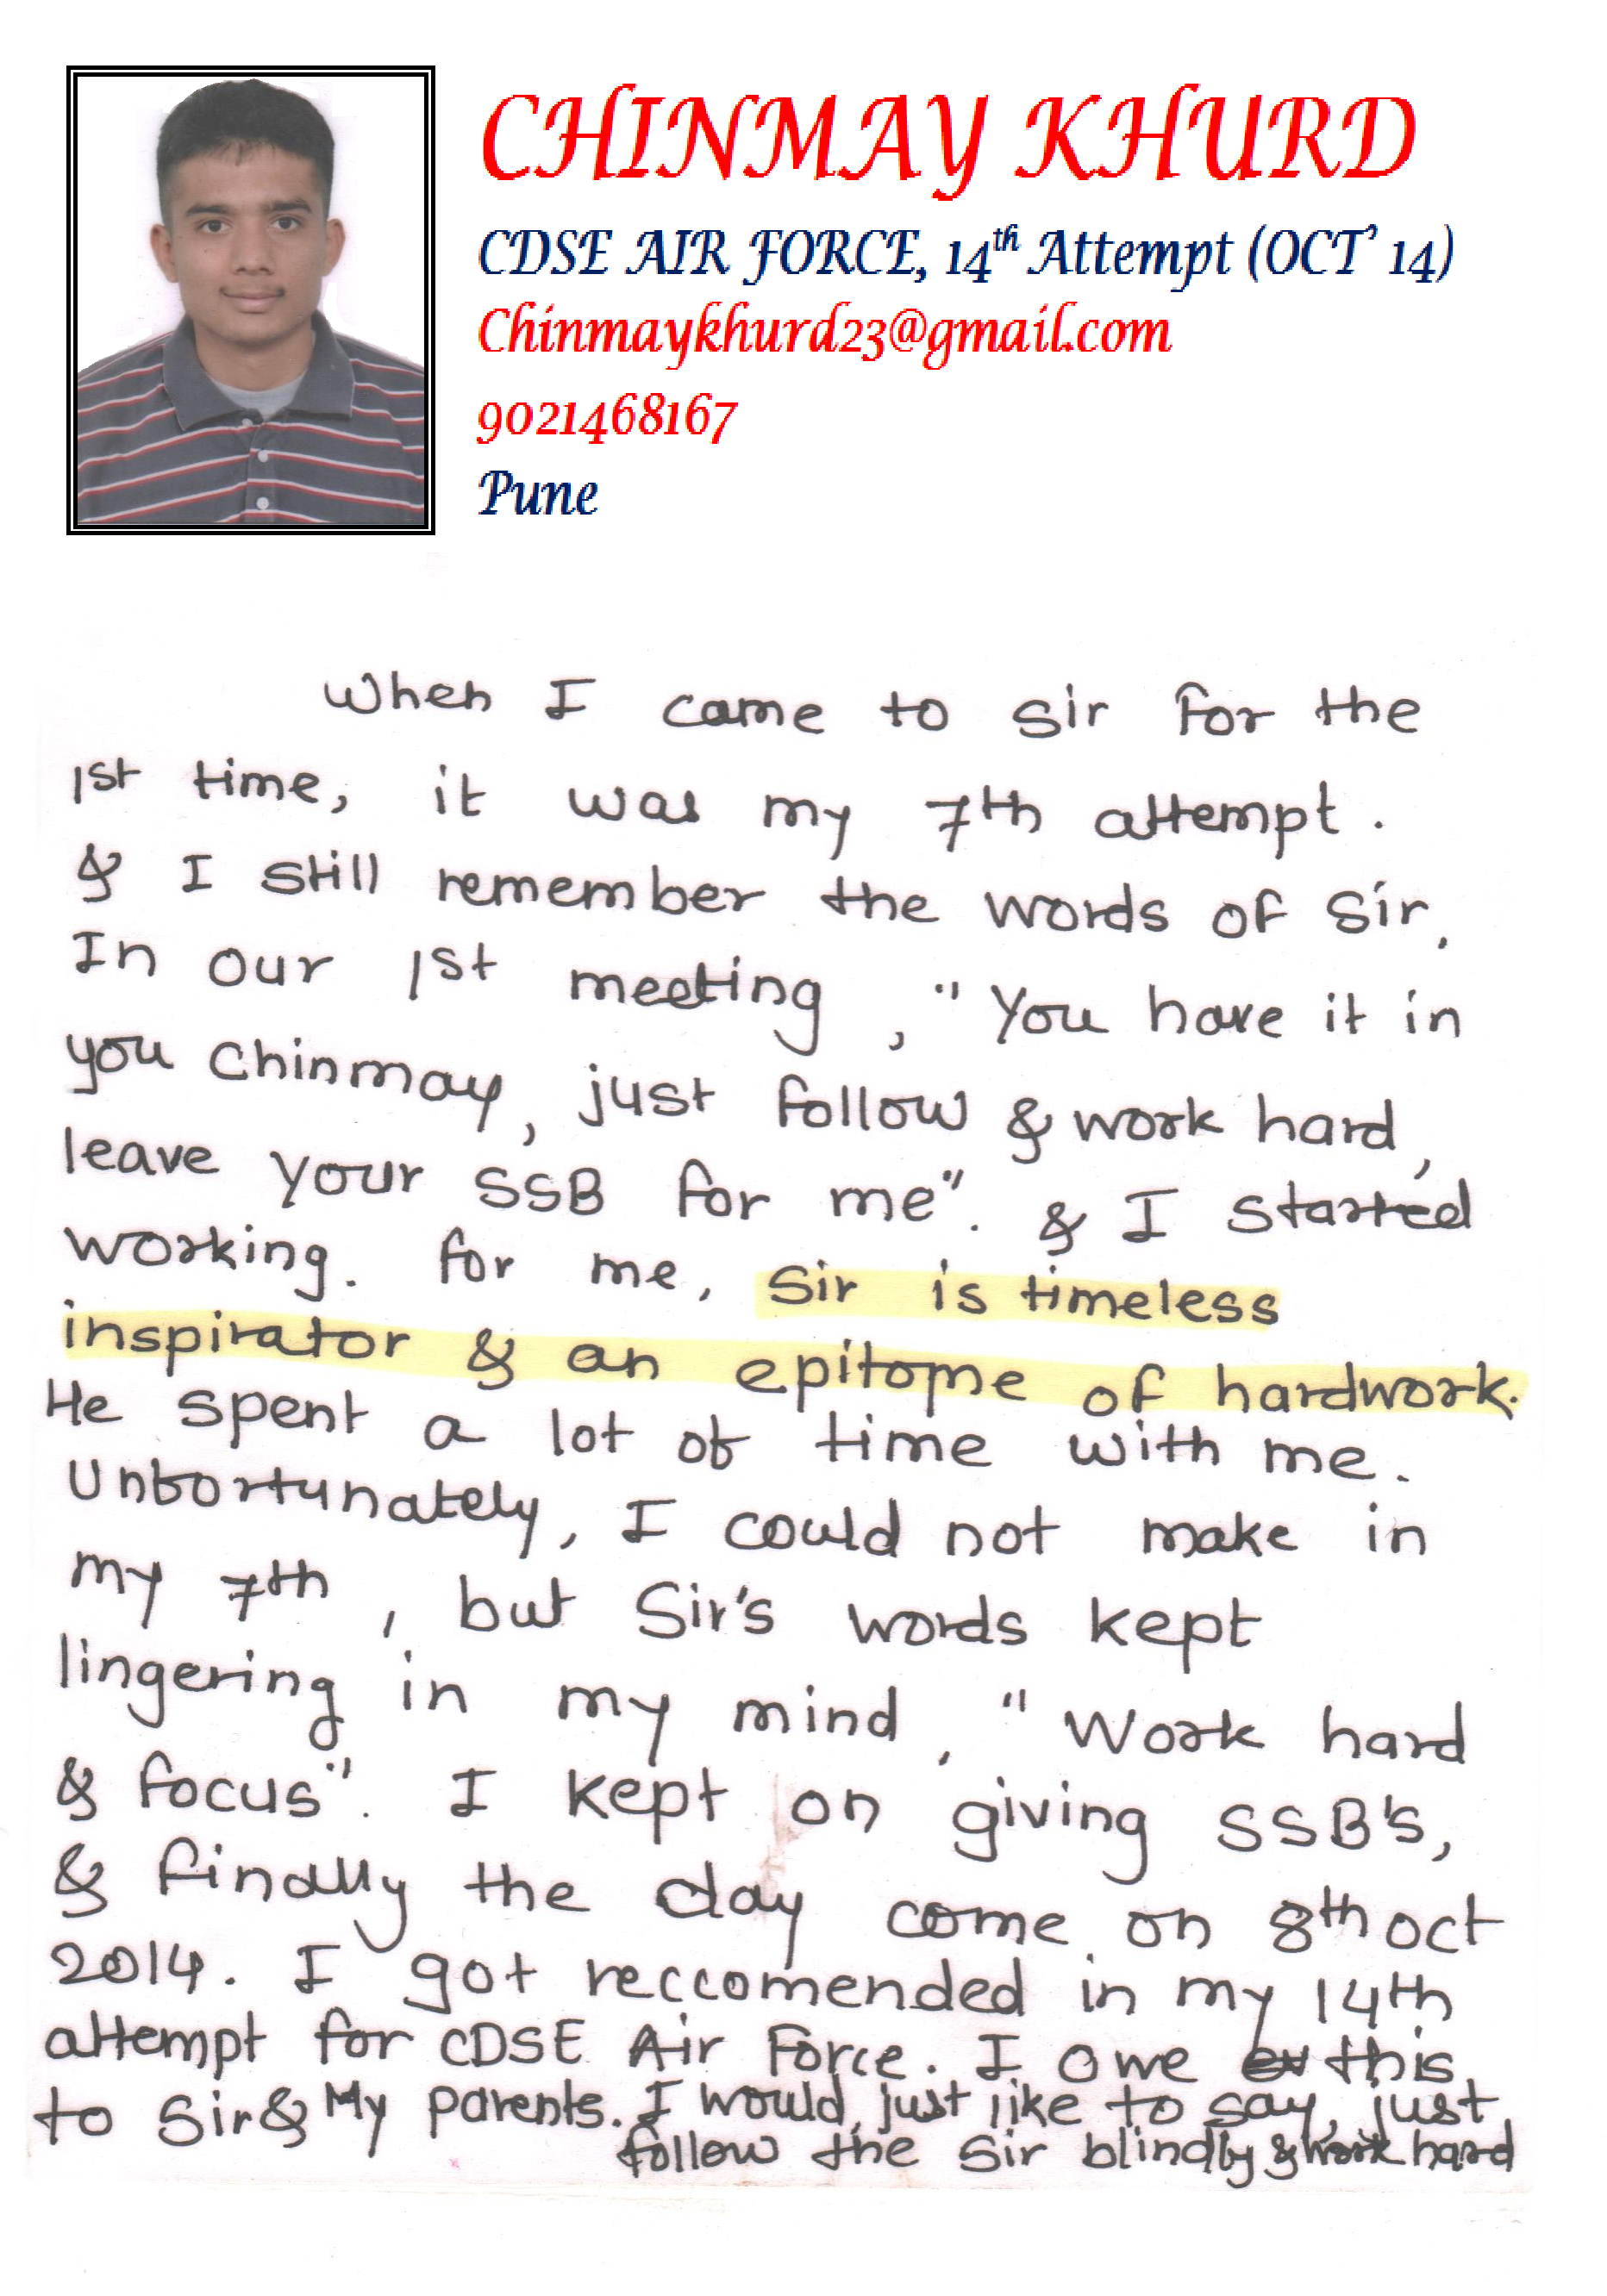 CHINMAY KHURD
CDSE AIR FORCE, 14th Attempt (OCT' 14)
Chinmaykhurd23@gmail.com
9021468167
Pune
When I came to sir for the
1st time, it was my 7th attempt.
& I still remember the words of sir,
In our 1st meeting, "You have it in
you Chinmay, just follow & work hard,
leave your SSB for me". & I started
working. for me, sir is timeless
inspirator & an epitome of hardwork.
He spent a lot of time with me.
Unfortunately, I could not make in
my 7th, but Sir's words kept
lingering in my mind, "Work hard
& focus". I kept on giving SSB's,
& finally the day come on 8th oct
2014. I got reccomended in my 14th
attempt for CDSE Air Force. I owe this
to Sir & My parents. I would just like to say, just
follow the Sir blindly & work hard